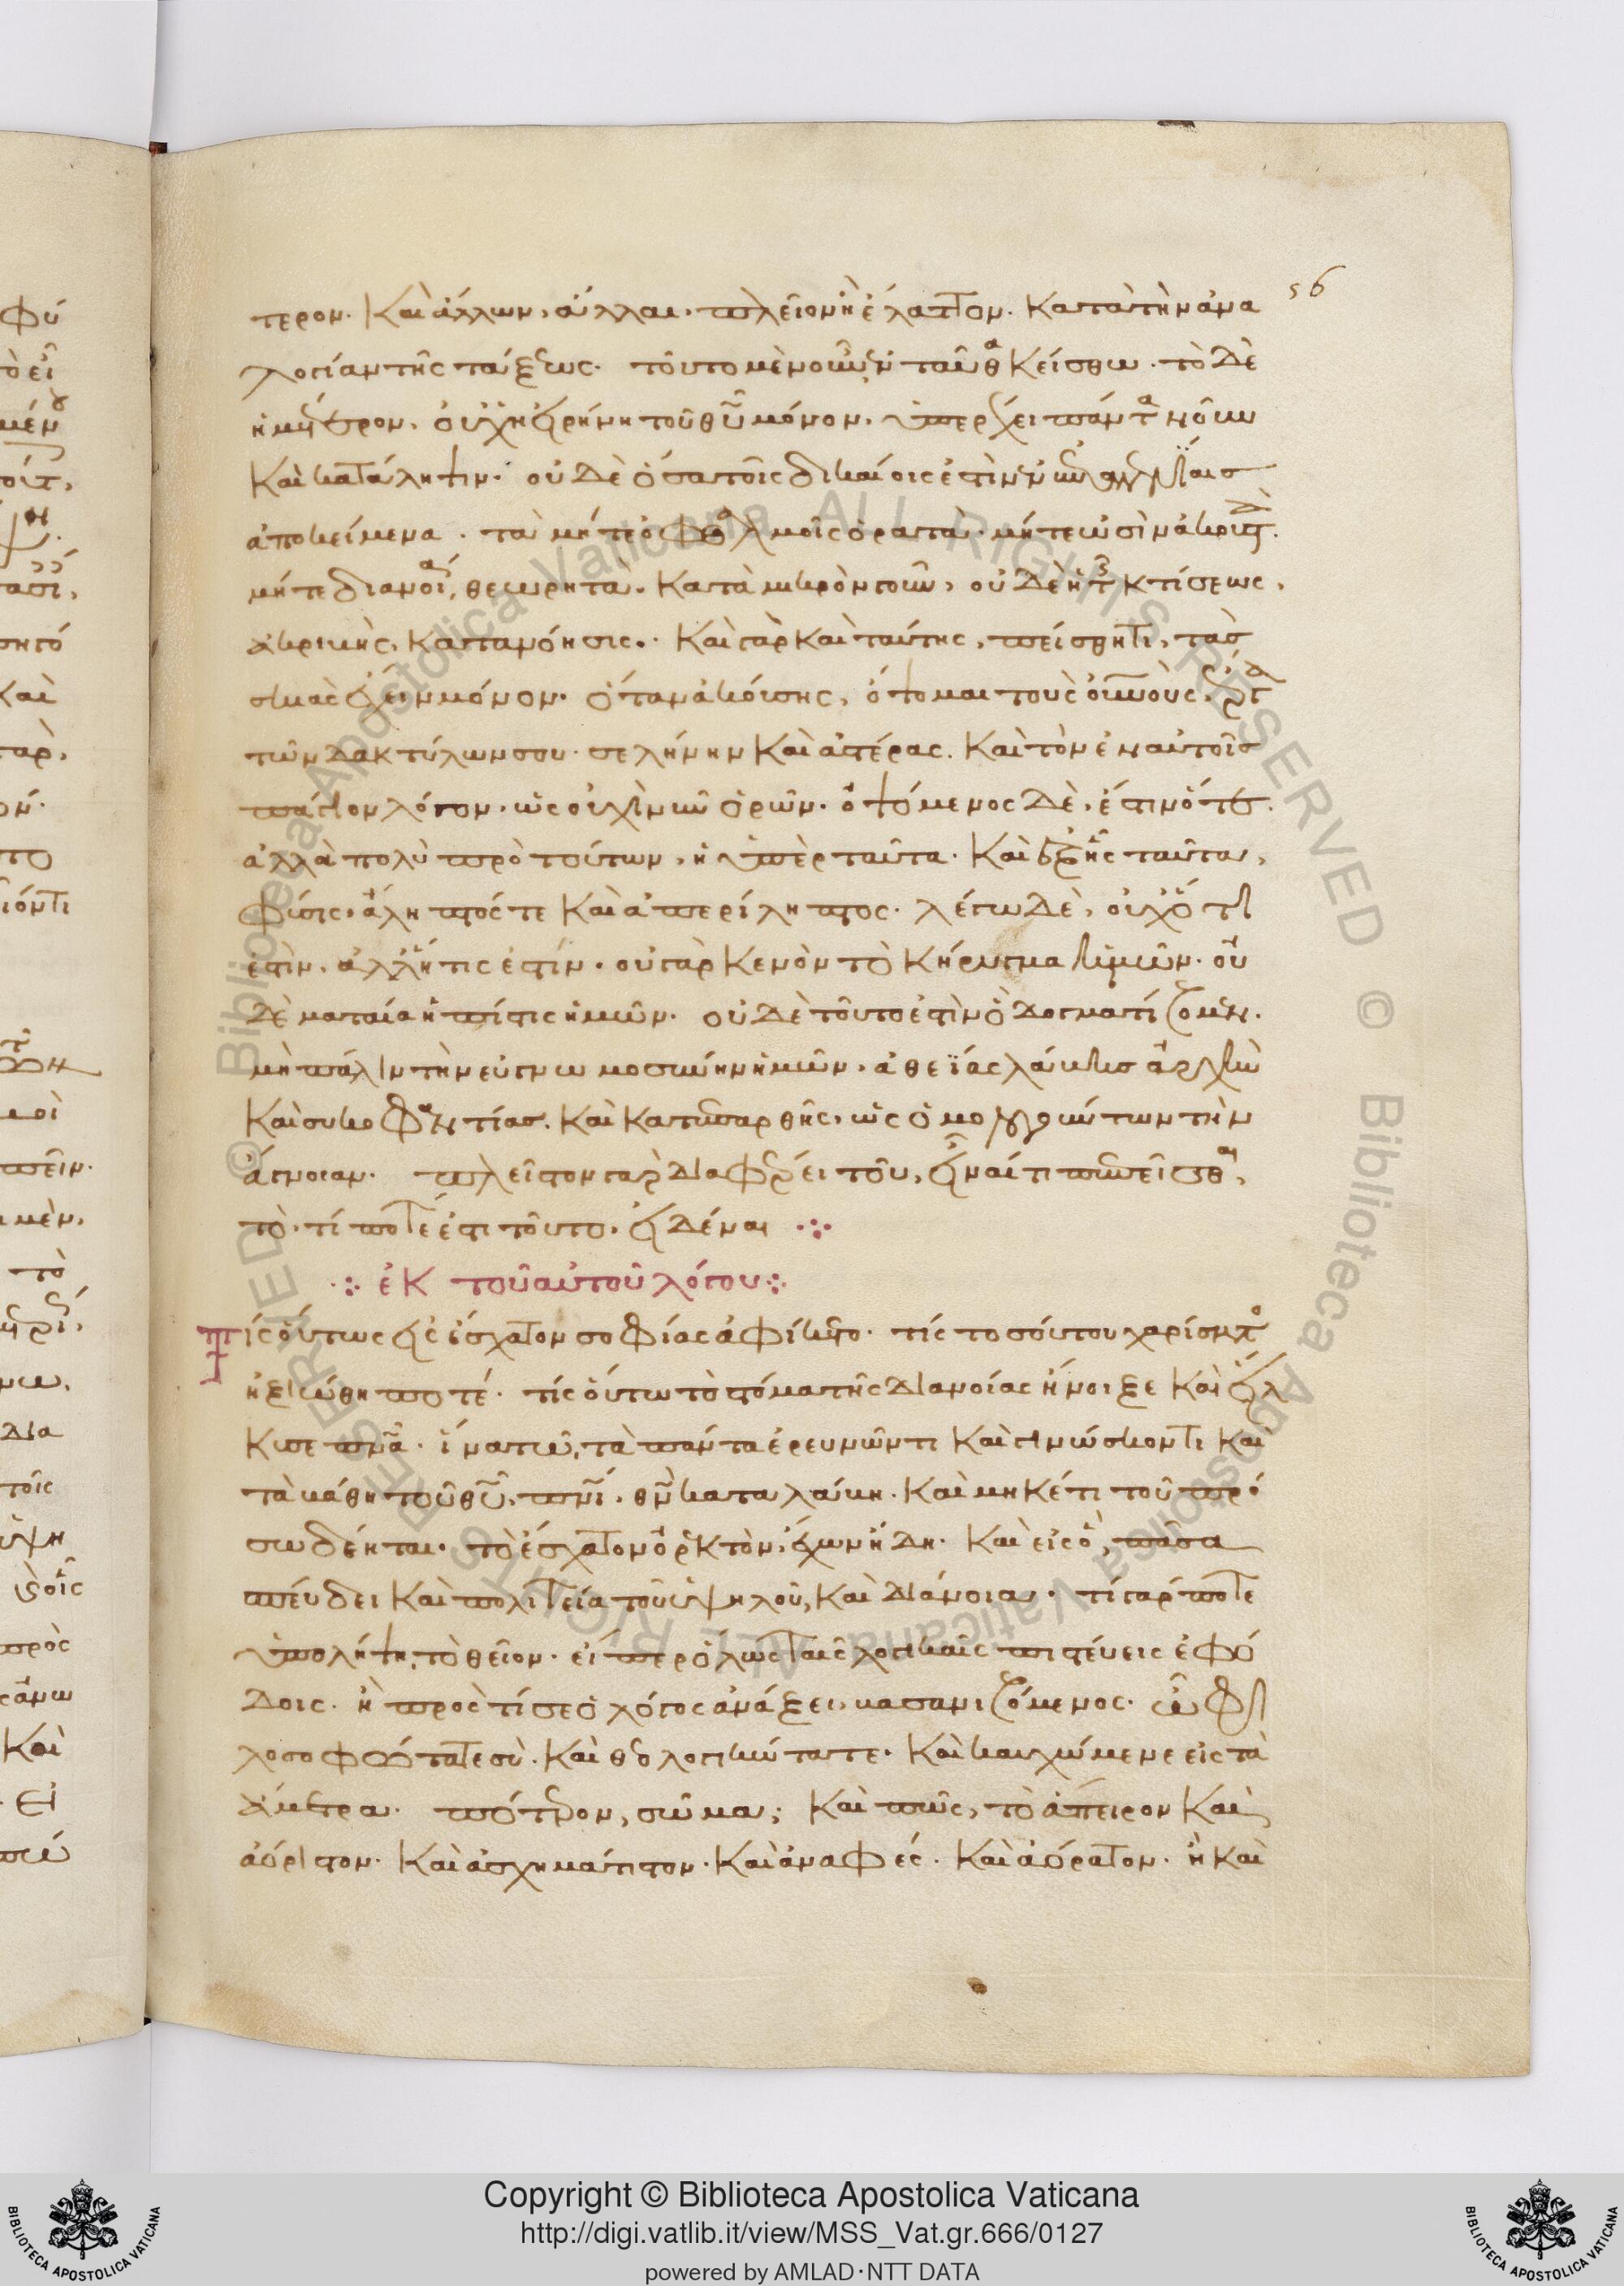 56
τερον. Καὶ ἄλλων, ἄλλαι. πλεῖον ἢ ἔλαττον. Κατὰ τὴν ἀνα
λογίαν τῆς τάξεως. τοῦτο μὲν οὖν ἐνταῦθα Κείσθω. τὸ δὲ
ἡμέτερον, οὐχ ἡ εἰρήνη τοῦ θῦ μόνον, ὑπερέχει πάντα νοῦν
Καὶ κατάληψιν. οὐδὲ ὅσα τοῖς δικαίοις ἐστὶν ἐν ἐπαγγελίαις
ἀποκείμενα. τὰ μήτε ὀφθαλμοῖς ὁρατὰ. μήτε ὠσὶν ἀκουστὰ.
μήτε διανοία, θεωρητὰ. Κατὰ μικρὸν γοῦν, οὐδὲ ἡ τῆς κτίσεως,
ἀκριβὴς, Κατανόησις. Καὶ γὰρ Καὶ ταύτης, πείσθητι, τὰς
σκιὰς ἔχειν μόνον. ὅταν ἀκούσης, ὄψομαι τοὺς οὐνοὺς, ἔργα
τῶν δακτύλων σου. σελήνην Καὶ ἀστέρας. Καὶ τὸν ἐν αὐτοῖς
πάγιον λόγον. ὡς οὐχὶ νῦν ὁρῶν. ὀψόμενος δὲ, ἔστιν ὅτε.
ἀλλὰ πολὺ πρὸ τούτων, ἡ ὑπὲρ ταῦτα. Καὶ ἐξ ἧς ταῦτα,
φύσις, ἄληπτός τε Καὶ ἀπερίληπτος. λέγω δὲ, οὐχ ὅτι
ἐστὶν. ἀλλ' ἥτις ἐστίν. οὐ γὰρ Κενὸν τὸ Κήρυγμα ἡμῶν. οὐ
δὲ ματαία ἡ πίστις ἡμῶν. οὐδὲ τοῦτο ἐστὶν ὃ δογματίζομεν.
μὴ πάλιν τὴν εὐγνωμοσύνην ἡμῶν, ἀθεΐας λάβης ἀρχὴν
Καὶ συκοφαντίας. Καὶ Κατεπαρθῆς, ὡς ὁμολογούντων τὴν
ἄγνοιαν. πλεῖστον γὰρ διαφέρει τοῦ, εἶναί τι πεπεῖσθαι,
τὸ. τί ποτέ ἐστι τοῦτο, εἰδέναι
ἐΚ τοῦ αὐτοῦ λόγου
Τίς οὕτως εἰς ἔσχατον σοφίας ἀφίκετο. τίς τοσούτου χαρίσματος
ἠξιώθη ποτέ. τίς οὕτω τὸ στόμα τῆς διανοίας ἤνοιξε Καὶ εἵλ
Κυσε πνᾶ. ἵνα τῶ, τὰ πάντα ἐρευνῶντι Καὶ γινώσκοντι Καὶ
τὰ βάθη τοῦ θῦ, πνῖ, θν καταλάβη. Καὶ μηκέτι τοῦ πρό
σω δέηται. τὸ ἔσχατον ὀρεκτὸν, ἔχων ἤδη. Καὶ εἰς ὃ, πᾶσα
σπεύδει Καὶ πολιτεία τοῦ ὑψηλοῦ, Καὶ διάνοια. τί γάρ ποτε
ὑπολήψη, τὸ θεῖον. εἴπερ ὅλως ταῖς λογικαῖς πιστεύεις ἐφό
δοις. ἢ πρὸς τί σε ὁ λόγος ἀνάξει, βασανιζόμενος. ὦ φι
λοσοφώτατε σὺ. Καὶ θεολογικώτατε. Καὶ καυχώμενε εἰς τὰ
ἄμετρα. πότερον, σῶμα; Καὶ πῶς, τὸ ἄπειρον Καὶ
ἀόριστον. Καὶ ἀσχημάτιστον. Καὶ ἀναφές. Καὶ ἀόρατον. ἢ Καὶ
Copyright © Biblioteca Apostolica Vaticana
http://digi.vatlib.it/view/MSS_Vat.gr.666/0127
powered by AMLAD·NTT DATA